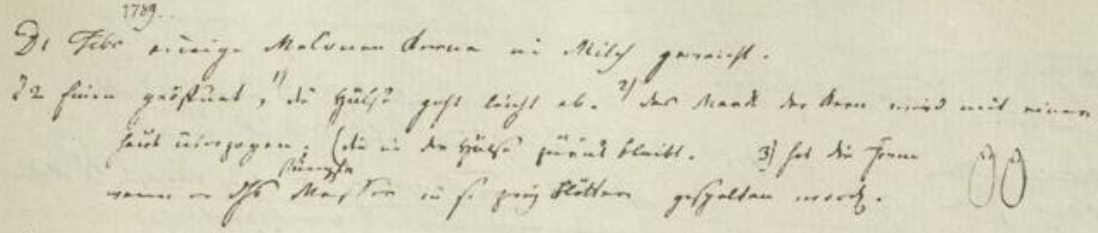 1789.
21 Febr einige Melonen Kerne in Milch geweicht.
22 einen geöffnet, 1) die Hülse geht leicht ab. 2) das Mark des Kern wird mit einer
Haut überzogen. (die in der Hülse zurück bleibt. 3) hat die Form
stumpfen
wenn er Messer in zwey Blätter gespalten word.